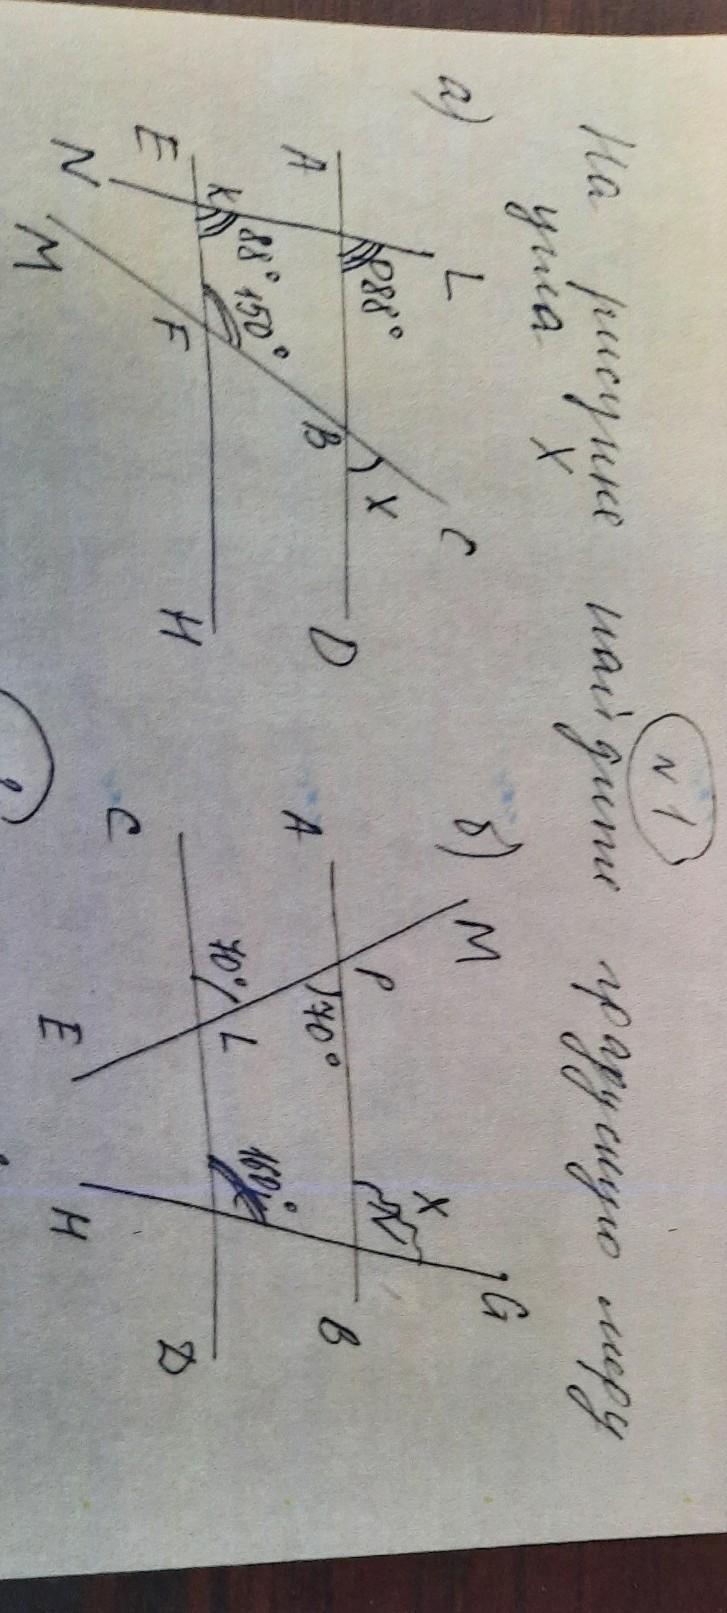 N 1
На рисунке найдите градусную меру
угла X
а)
L
A
P
88°
B
X
C
D
E
K
88°
150°
F
H
N
M
б)
M
G
A
P
70°
X
N
B
C
70°
L
160°
D
E
H